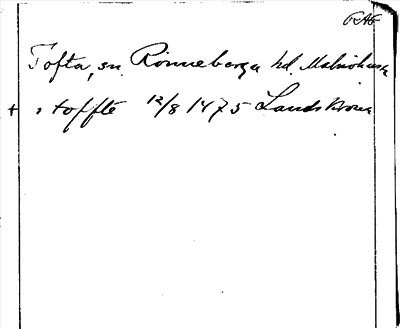 RAÄ
Tofta, sn. Rönnebergs hd. Malmöhus l.
+ i toffte 12/8 1475 Landskrona